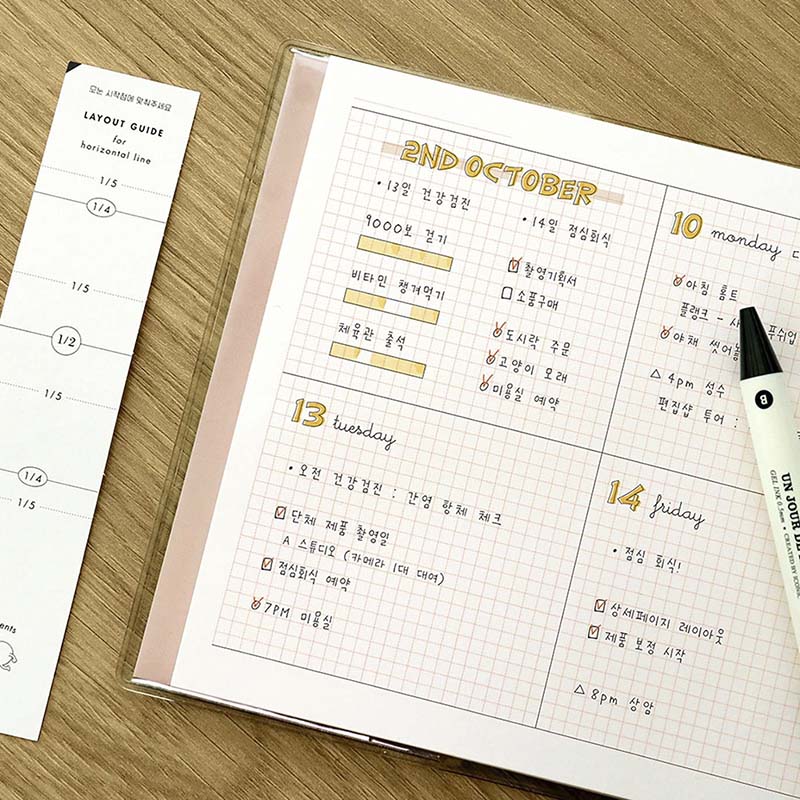 모눈 시작점에 맞춰주세요
LAYOUT GUIDE
for
horizontal line
1/5
1/4
1/5
1/2
1/5
1/4
1/5
2ND OCTOBER
•13일 건강검진
9000보 걷기
비타민 챙겨먹기
체육관 출석
•14일 점심회식
촬영기획서
소품구매
도시락 주문
고양이 모래
미용실 예약
10 monday
아침 홈트
플랭크 -
푸쉬업
야채
△ 4pm 성수
편집샵 투어 :
13 tuesday
• 오전 건강검진 : 간염 항체 체크
단체 제품 촬영일
A 스튜디오 (카메라 1대 대여)
점심회식 예약
7PM 미용실
14 friday
• 점심 회식!
상세페이지 레이아웃
제품 보정 시작
△ 8pm 상암
B
UN JOUR DE
GEL INK 0.5mm • CREATED BY ICONIC